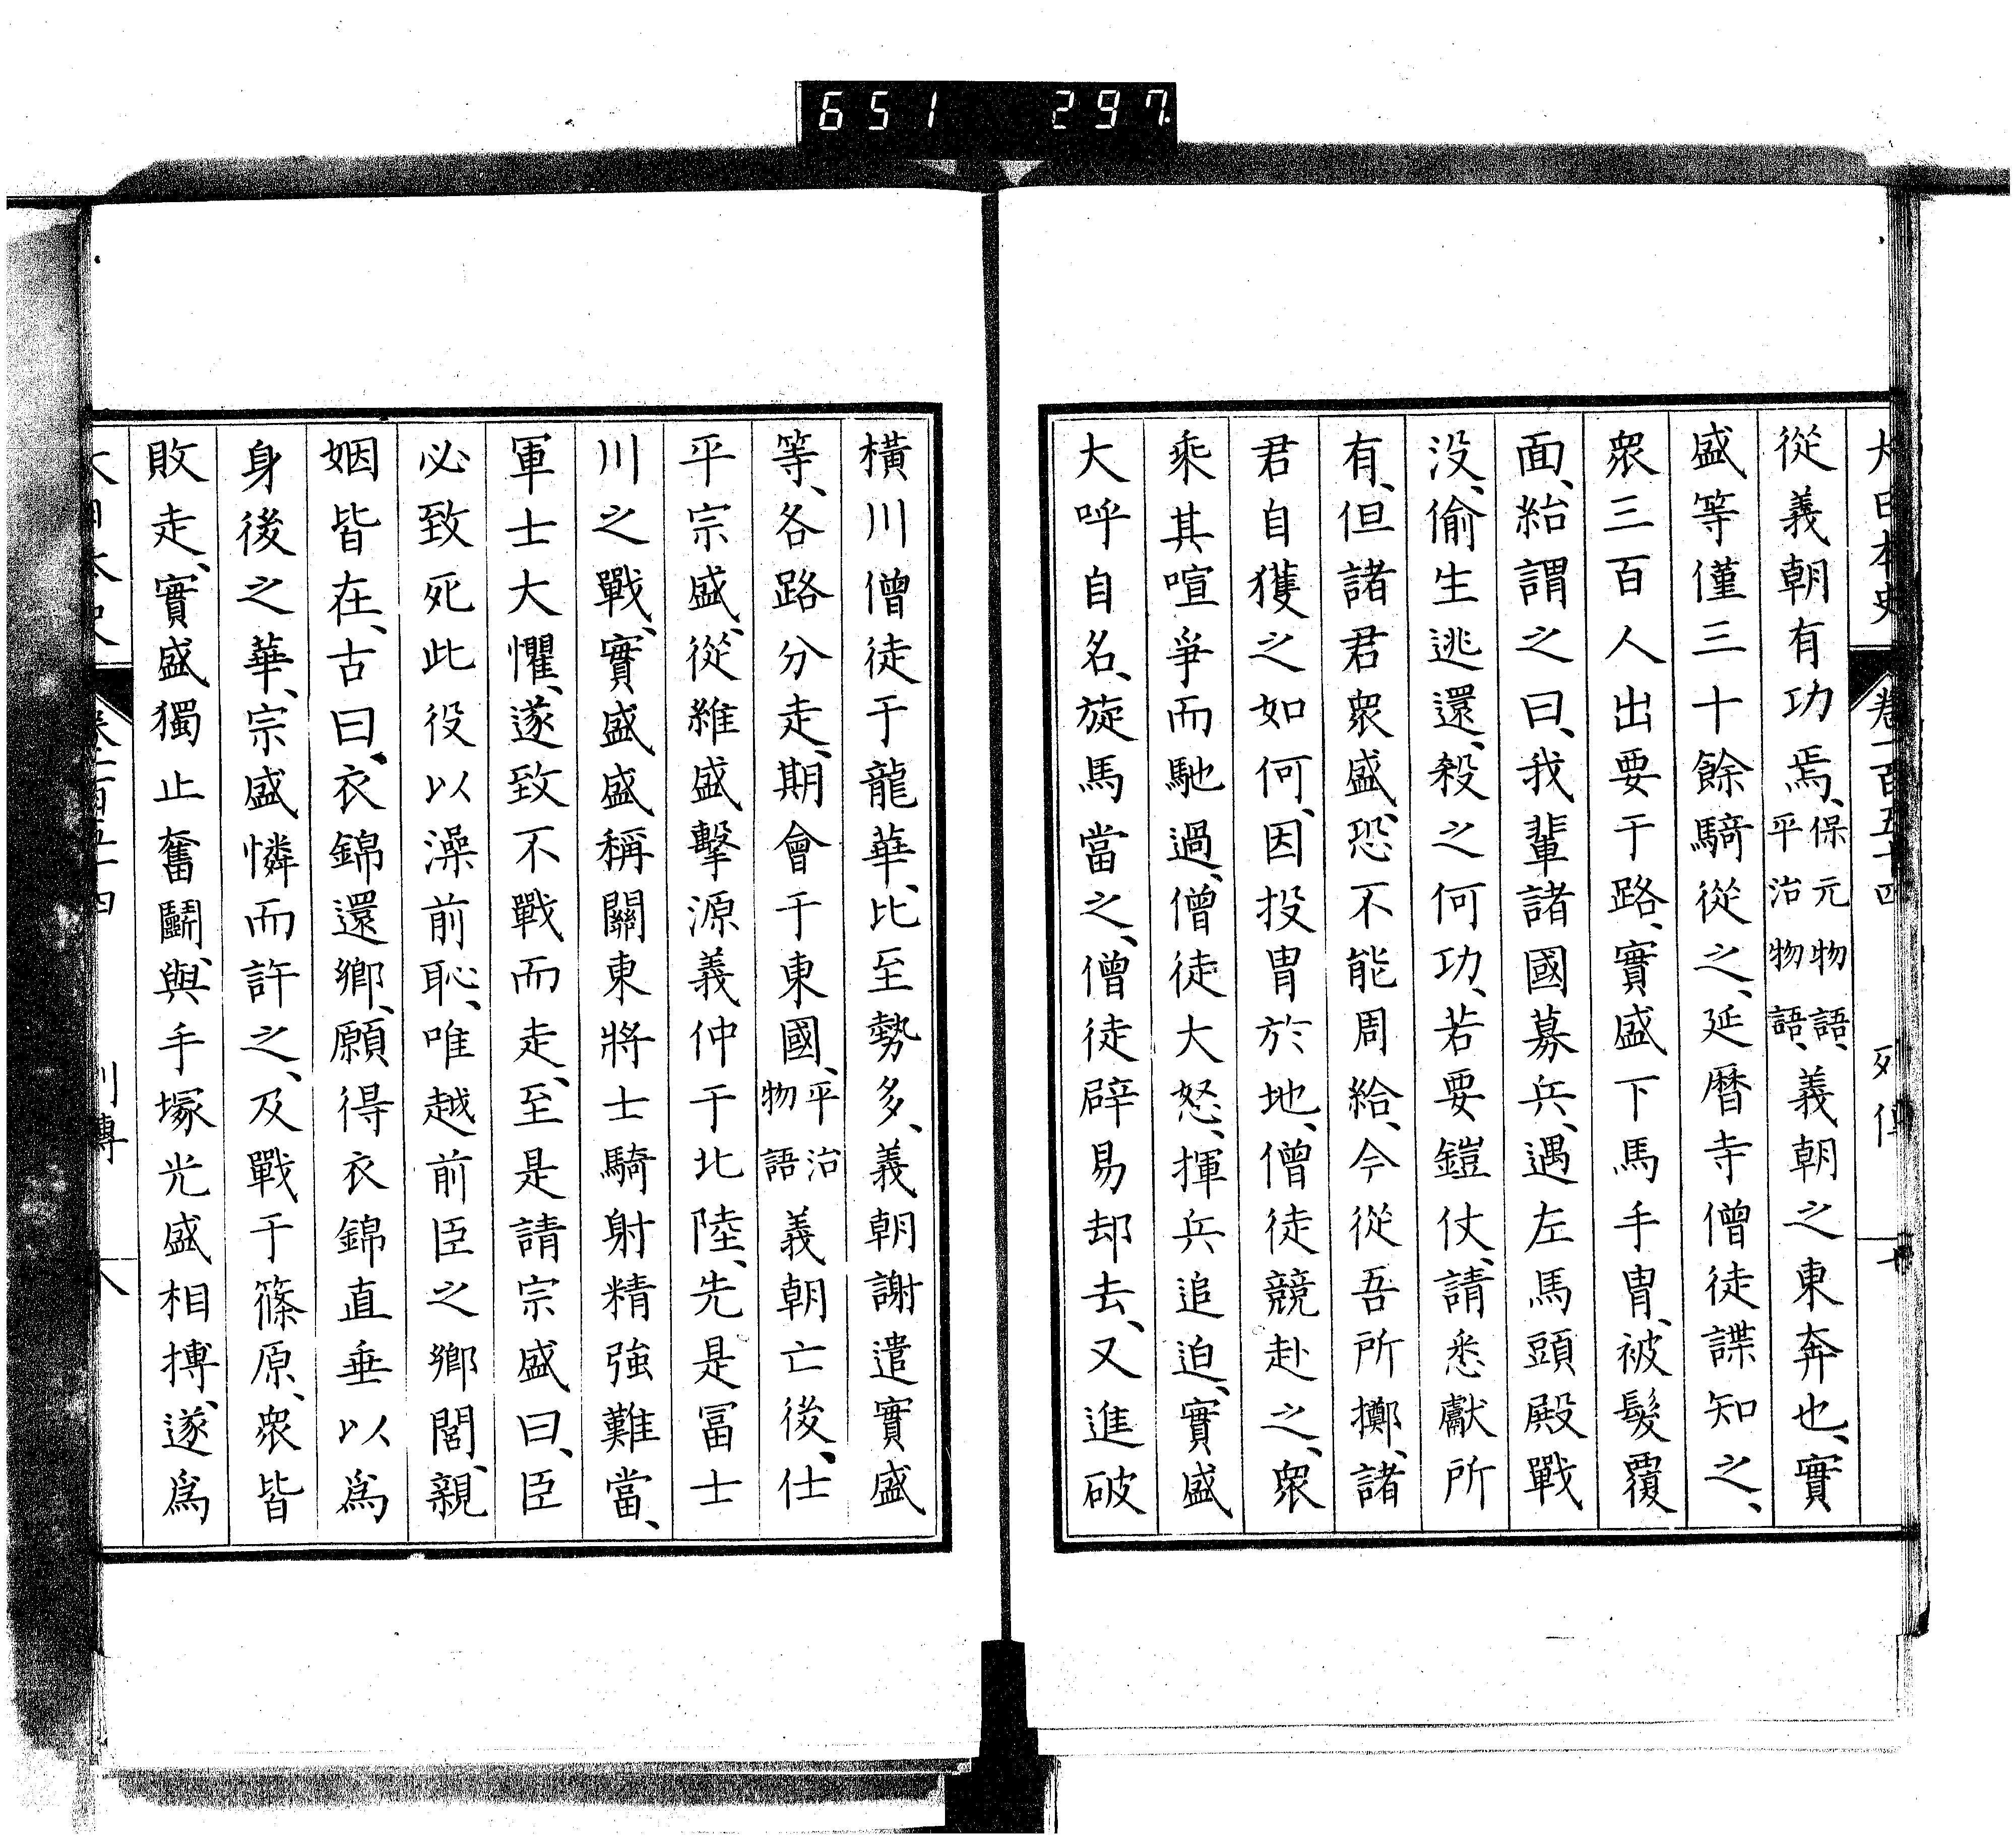 651 297.
大日本史 卷一百五十四 列傳
從義朝有功焉、保元物語、平治物語、義朝之東奔也、實
盛等僅三十餘騎從之、延曆寺僧徒諜知之、
衆三百人出要于路、實盛下馬手冑、被髮覆
面、紿謂之曰、我輩諸國募兵、遇左馬頭殿戰
没、偷生逃還、殺之何功、若要鎧仗、請悉獻所
有、但諸君衆盛、恐不能周給、今從吾所擲、諸
君自獲之如何、因投冑於地、僧徒競赴之、衆
乘其喧爭而馳過、僧徒大怒、揮兵追迫、實盛
大呼自名、旋馬當之、僧徒辟易却去、又進破
橫川僧徒于龍華、比至勢多、義朝謝遣實盛
等、各路分走、期會于東國、平治物語義朝亡後、仕
平宗盛、從維盛擊源義仲于北陸、先是冨士
川之戰、實盛盛稱關東將士騎射精強難當、
軍士大懼、遂致不戰而走、至是請宗盛曰、臣
必致死此役以澡前恥、唯越前臣之鄉閭、親
姻皆在、古曰、衣錦還鄉、願得衣錦直垂以爲
身後之華、宗盛憐而許之、及戰于篠原、衆皆
敗走、實盛獨止奮鬭、與手塚光盛相搏、遂爲
大日本史 卷一百五十四 列傳